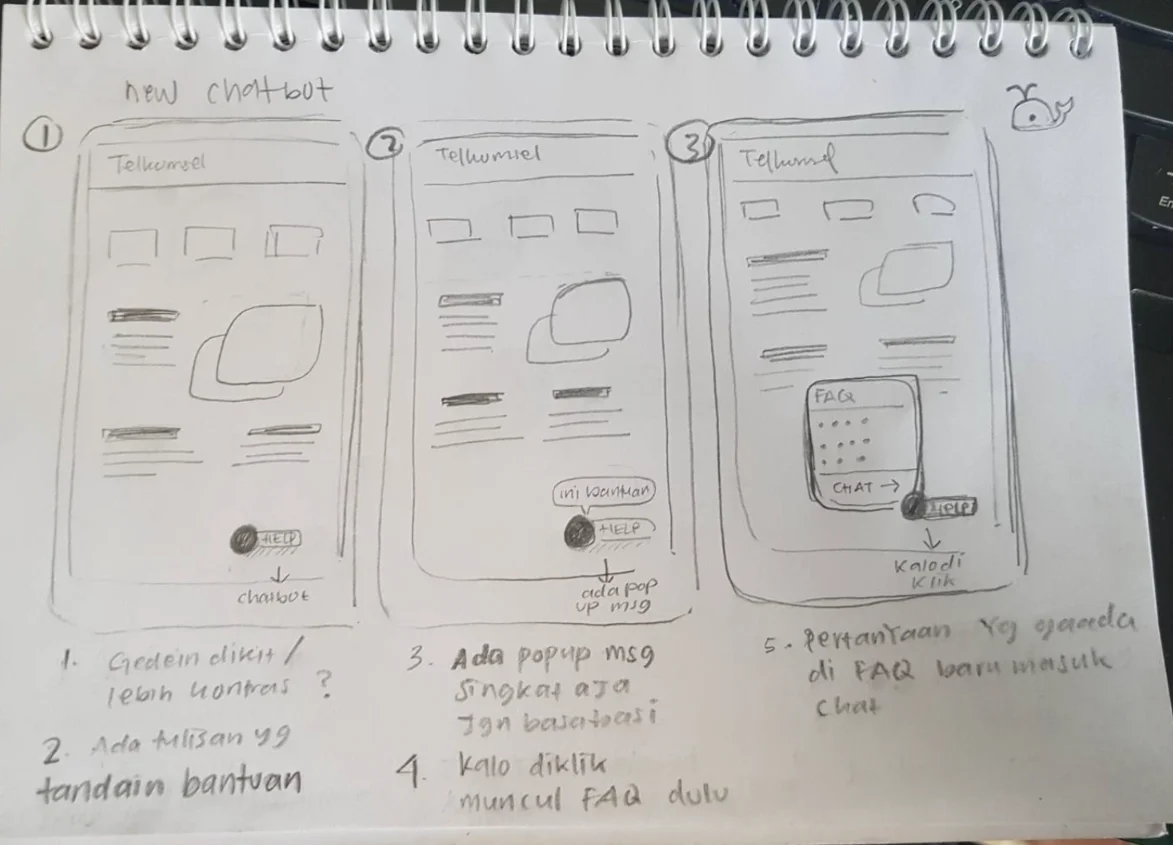 new chatbot
1
Telkomsel
HELP
chatbot
2
Telkomsel
ini bantuan
HELP
ada pop
up msg
3
Telkomsel
FAQ
CHAT →
HELP
Kalo di
Klik
1. Gedein dikit /
lebih kontras ?
2. Ada tulisan yg
tandain bantuan
3. Ada popup msg
singkat aja
Jgn basabasi
4. Kalo diklik
muncul FAQ dulu
5. Pertanyaan yg gaada
di FAQ baru masuk
chat
En